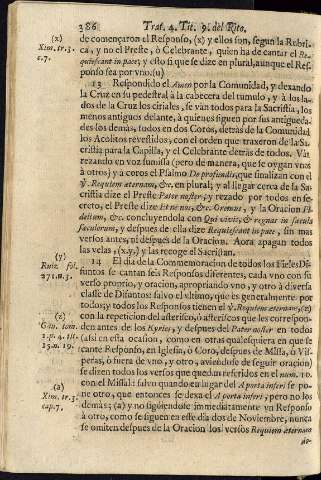 286 Trat. 4. Tit. 9. del Rito.
(z)
Xim. tr. 3.
c. 7.
de començaron el Responso, (z) y ellos son, segun la Rubri-
ca, y no el Preste, ò Celebrante, quien ha de cantar el Re-
quiescant in pace; y esto si que se dize en plural, aunque el Res-
ponso sea por vno. (u)
13 Respondido el Amen por la Comunidad, y dexando
la Cruz en su pedestral à la cabecera del tumulo, y à los la-
dos de la Cruz los ciriales, se van todos para la Sacristia, los
menos antiguos delante, à quienes siguen por sus antigueda-
des los demàs, todos en dos Coros, detràs de la Comunidad
los Acolitos revestidos, con el orden que traxeron de la Sa-
cristia para la Capilla, y el Celebrante detràs de todos. Vàn
rezando en voz sumissa (pero de manera, que se oygan vnos
à otros) y à coros el Psalmo De profundis, que finalizan con el
℣. Requiem æternam, &c. en plural; y al llegar cerca de la Sa-
cristia dize el Preste Pater noster; y rezado por todos en se-
creto, el Preste dize Et ne nos, &c. Oremus, y la Oracion Fi-
delium, &c. concluyendola con Qui vivis, & regnas in sæcula
sæculorum, y despues de ella dize Requiescant in pace, sin mas
versos antes, ni despues de la Oracion. Aora apagan todos
las velas, (x. y.) y las recoge el Sacristan.
(y)
Ruiz, fol.
271. n. 3.
14 El dia de la Commemoracion de todos los Fieles Di-
funtos se cantan seis Responsos diferentes, cada vno con su
verso proprio, y oracion, apropriando vno, y otro à diversa
classe de Difuntos; salvo el vltimo, que es generalmente por
todos; y todos los Responsos tienen el ℣. Requiem æternam; (z)
(z)
Gàv. tom.
1. p. 4. tit.
15. n. 19.
con la repeticion del asterisco, ò astericos que les correspon-
den antes de los Kyries, y despues del Pater noster en todos
(assi en esta ocasion, como en otras qualesquiera en que se
cante Responso, en Iglesia, ò Coro, despues de Missa, ò Vis-
peras, ò fuera de vno, y otro, aviendose de seguir oracion)
se dizen todos los versos que quedan referidos en el num. 10.
con el Missal: salvo quando en lugar del A porta inferi se po-
(a)
Xim. tr. 3.
cap. 7.
ne otro, que entonces se dexa el A porta inferi, pero no los
demàs; (a) y no siguiendose immediatamente vn Responso
à otro, como se siguen en este dia dos de Noviembre, nunca
se omiten despues de la Oracion los versos Requiem æternam